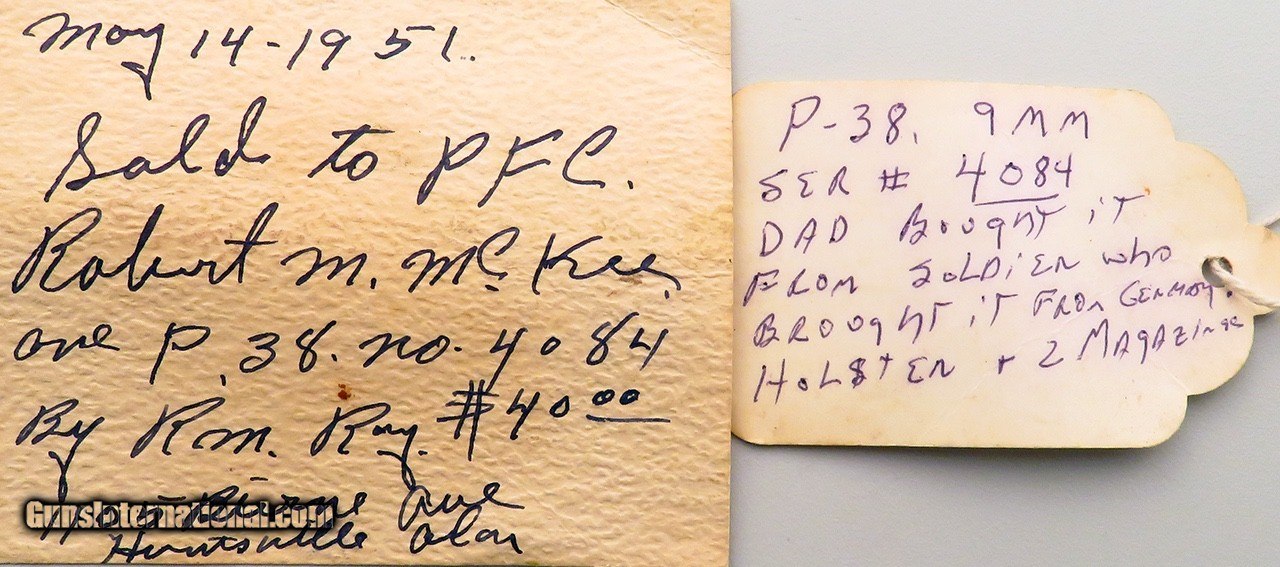 May 14-1951.
Sold to PFC.
Robert M. McKee
one P. 38. no. 4084
By Rm. Ray. #40.00
Ave
Huntsville Ala
GunsInternational.com
P-38. 9MM
SER # 4084
DAD BOUGHT iT
FROM SOLDiER WHO
BROUGHT iT FROM GERMANY.
HOLSTER + 2 MAGAZINES